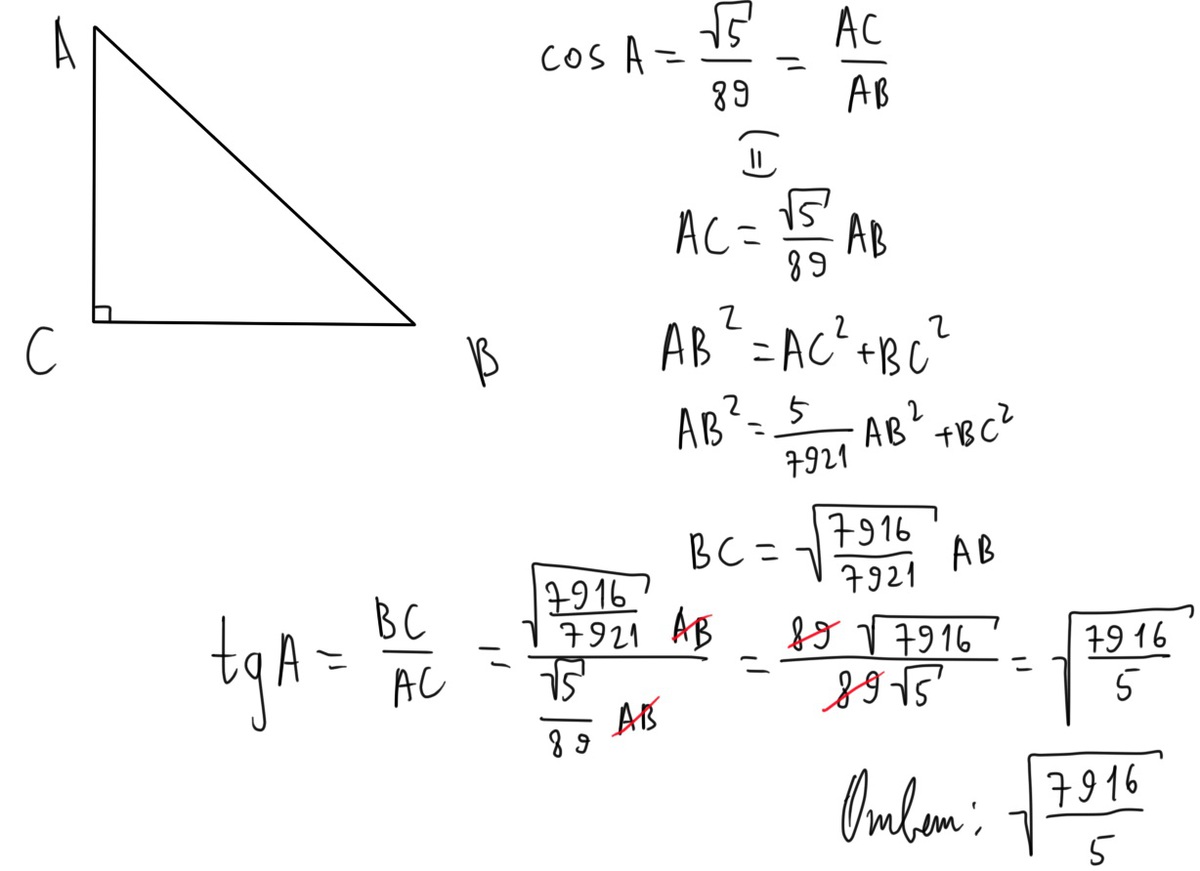 A
C
B
cos A = √5/89 = AC/AB
⇓
AC = √5/89 AB
AB² = AC² + BC²
AB² = 5/7921 AB² + BC²
BC = √(7916/7921) AB
tg A = BC/AC = (√(7916/7921) AB)/(√5/89 AB) = (89 √7916)/(89 √5) = √(7916/5)
Ответ: √(7916/5)